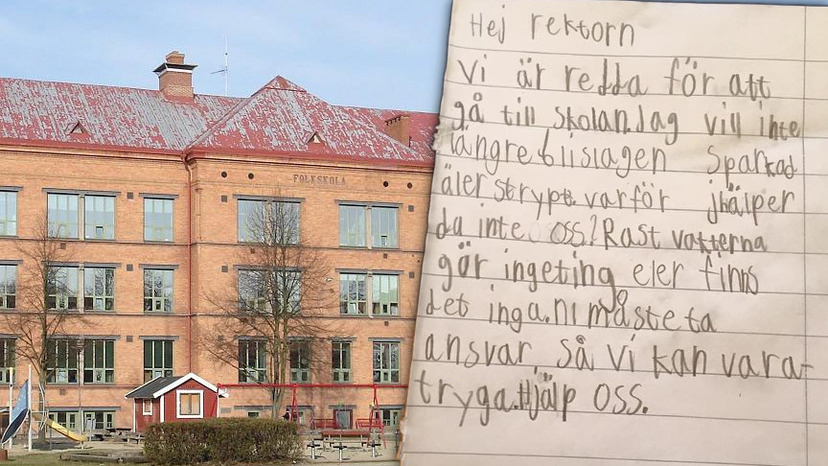 FOLKSKOLA
Hej rektorn
vi är redda för att
gå till skolan.Jag vill inte
längre bli slagen sparkad
äler strypt. varför jhälper
du inte oss? Rast vatterna
gör ingeting eler finns
det inga. ni måste ta
ansvar så vi kan vara
tryga. Hjälp oss.